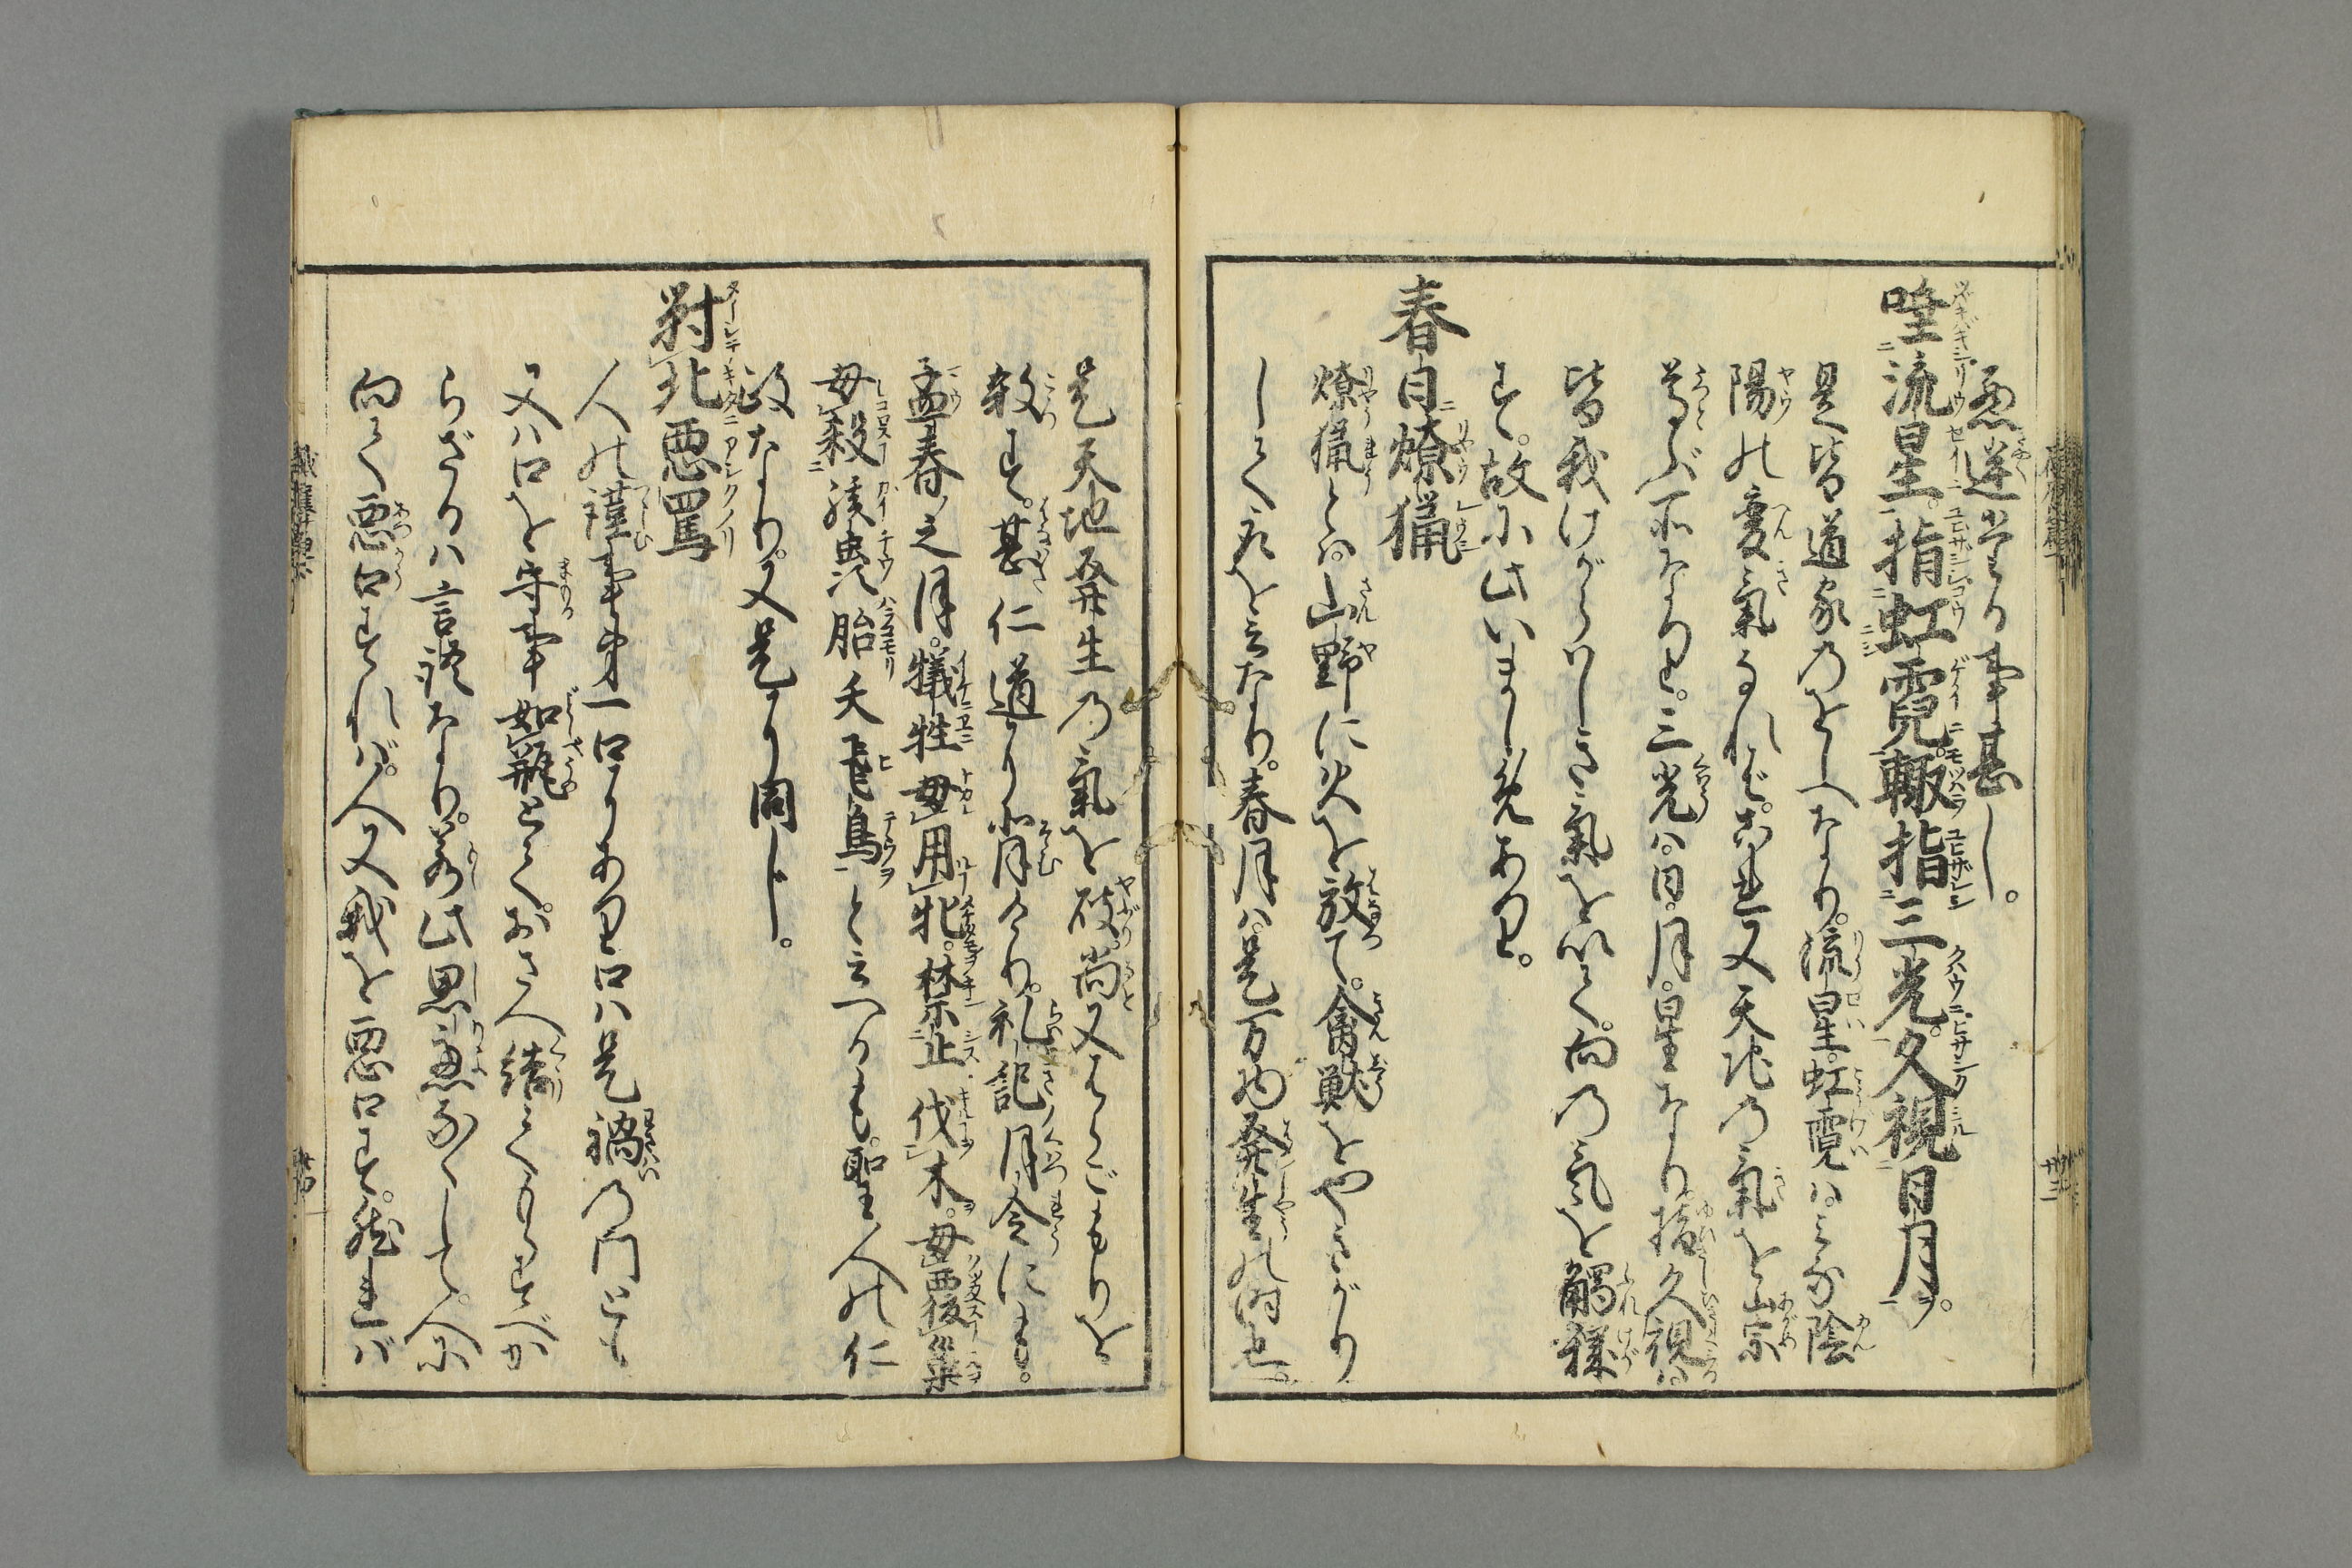 悪逆なる事甚し。
唾流星。指虹霓。輙指三光。久視日月。
是皆道家のをしへなり。流星。虹霓ハ。みな陰
陽の変氣なれど。是又天地の氣を崇
尊ぶ所なりと。三光ハ。日。月。星なり。指久視ハ
皆我けがらハしき氣を以て。向の気を觸穢
す。故に此いましめあり。
春日燎獵
燎猟とハ。山野に火を放て。禽獣をやきがり
して取を云なり。春月ハ。是万物発生の時也。
是天地発生の氣を破。尚又はらごもりを
殺す。甚仁道にそむけり。礼記月令にも。
孟春之月。犠牲毋用牝。禁止伐木。毋覆巣
毋殺孩蟲胎夭飛鳥と云へるも。聖人の仁
政なり。又是に同し。
對北惡罵
人の謹事第一口にあり口ハ是禍の門とも
又ハ口を守事如瓶とて。おさへ結てもらすべか
らざるハ言語なり。若此思慮なくして。人に
向て悪口すれバ。人又我を悪口す。然れバ